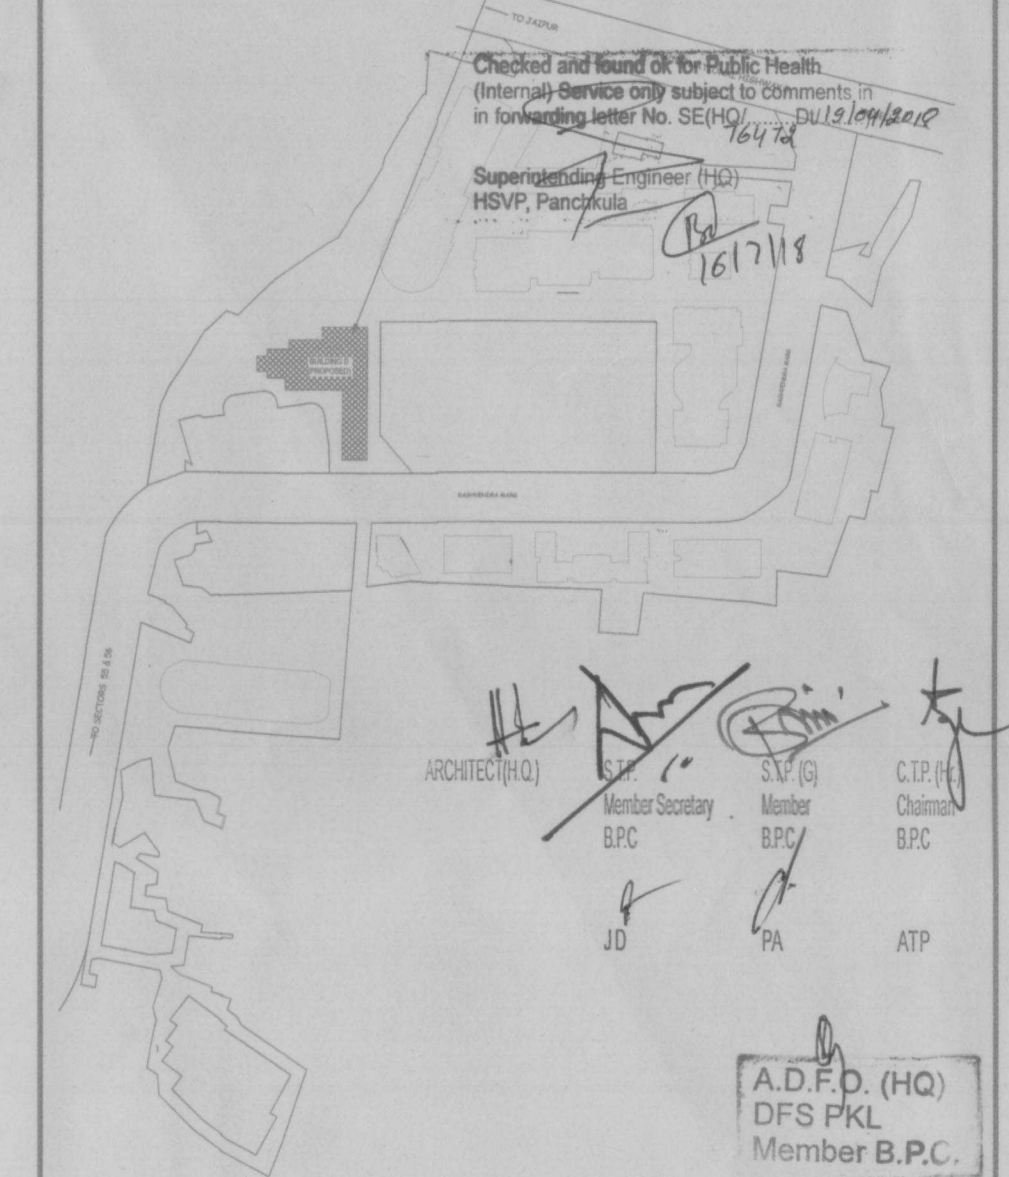 TO JAIPUR
Checked and found ok for Public Health
(Internal) Service only subject to comments in
in forwarding letter No. SE(HQ/........Dt/19/04/2018
76472
Superintending Engineer (HQ)
HSVP, Panchkula
16/7/18
BUILDING
(PROPOSED)
RAGHVENDRA MARG
RAGHVENDRA MARG
TO SECTORS 55 & 56
ARCHITECT(H.Q.) S.T.P. S.T.P. (G) C.T.P. (Hr.)
Member Secretary Member Chairman
B.P.C B.P.C B.P.C
JD PA ATP
A.D.F.O. (HQ)
DFS PKL
Member B.P.C.